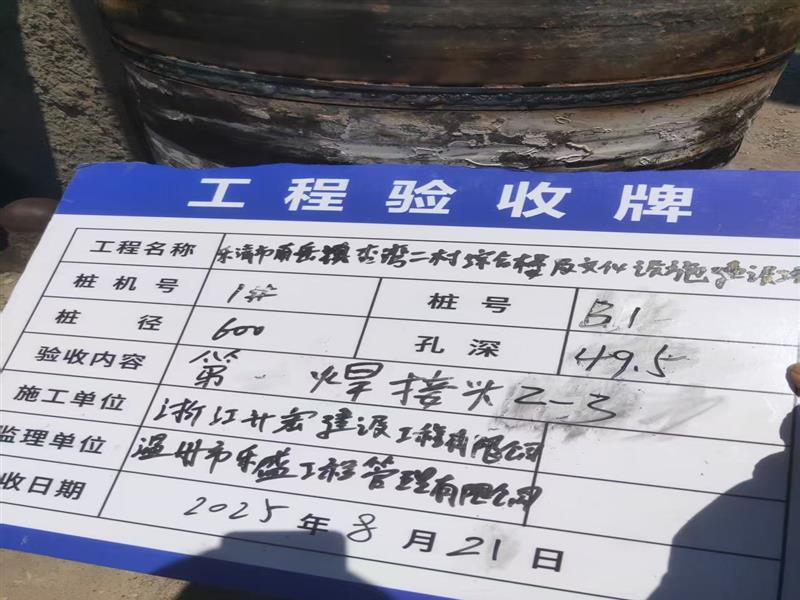 工程验收牌
工程名称 乐清市南岳镇杏湾二村综合楼及文化设施建设工
桩机号 1# 桩号 31
桩径 600 孔深 49.5
验收内容 第 焊接头2-3
施工单位 浙江升宏建设工程有限公司
监理单位 温州市乐盛工程管理有限公司
收日期 2025年8月21日